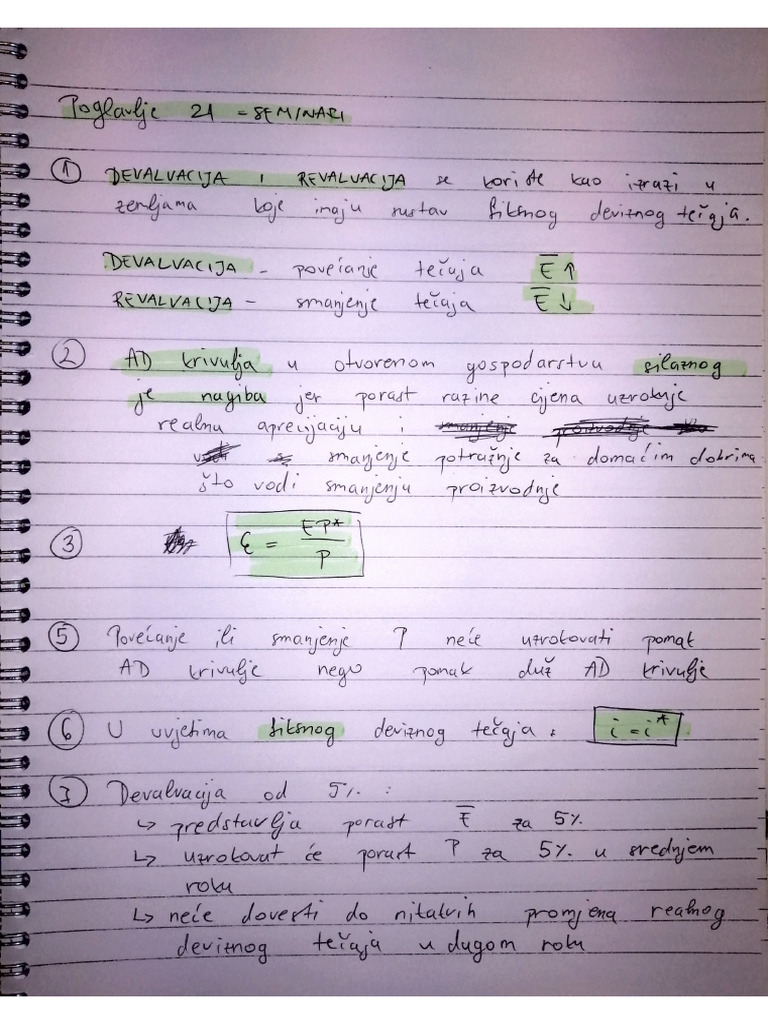 Poglavlje 21 = SEMINARI
① DEVALVACIJA I REVALVACIJA se koriste kao izrazi u
zemljama koje imaju sustav fiksnog deviznog tečaja.
DEVALVACIJA - povećanje tečaja E̅ ↑
REVALVACIJA - smanjenje tečaja E̅ ↓
② AD krivulja u otvorenom gospodarstvu silaznog
je nagiba jer porast razine cijena uzrokuje
realnu aprecijaciju i
smanjenje potražnje za domaćim dobrima
što vodi smanjenju proizvodnje
③ ε = EP* / P
⑤ Povećanje ili smanjenje P neće uzrokovati pomak
AD krivulje nego pomak duž AD krivulje
⑥ U uvjetima fiksnog deviznog tečaja: i = i*
⑦ Devalvacija od 5% :
↳ predstavlja porast E̅ za 5%.
↳ uzrokovat će porast P za 5%. u srednjem
roku
↳ neće dovesti do nikakvih promjena realnog
deviznog tečaja u dugom roku